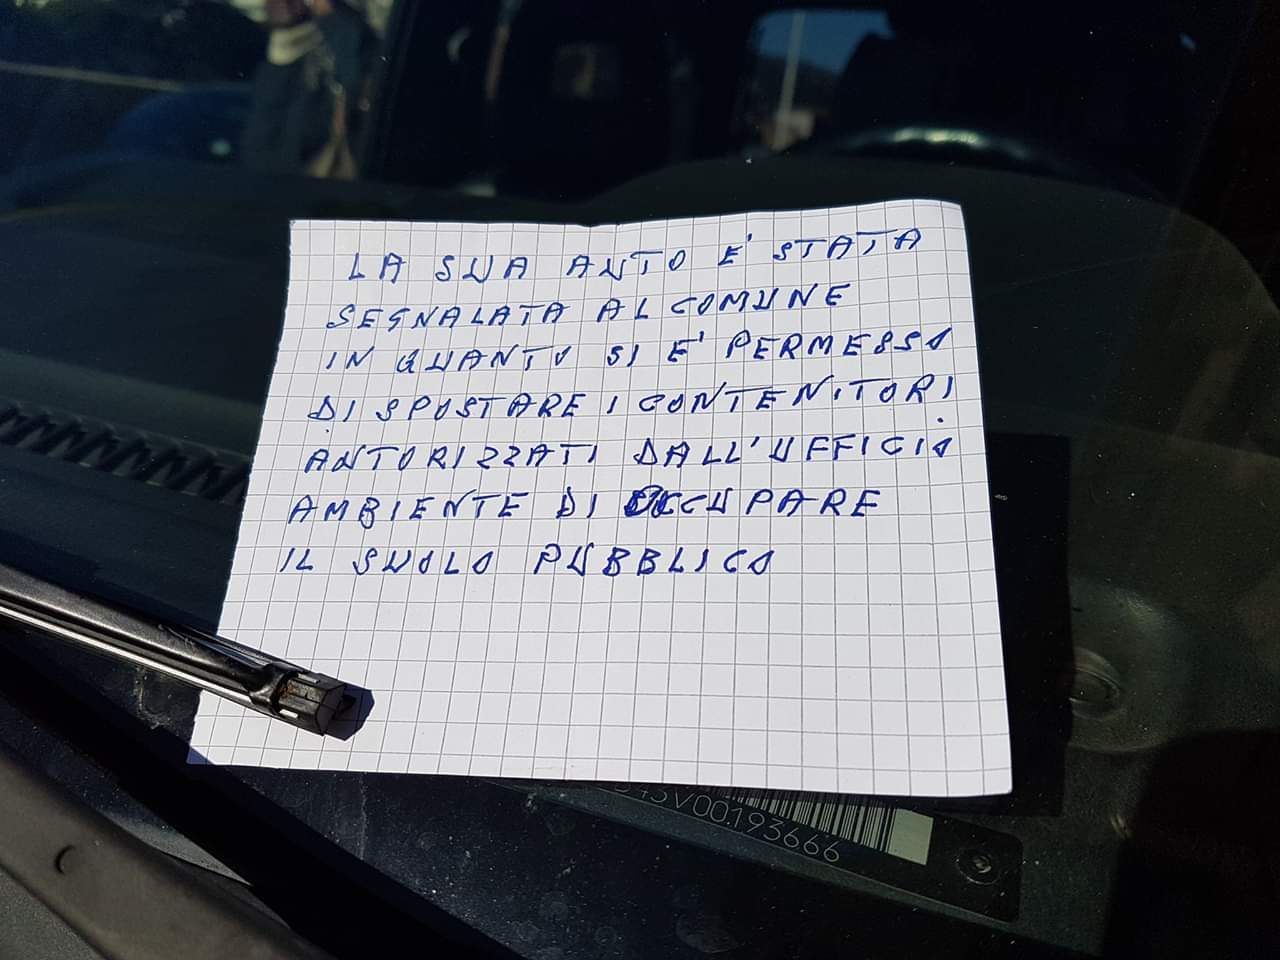 LA SUA AUTO E' STATA
SEGNALATA AL COMUNE
IN QUANTO SI E' PERMESSO
DI SPOSTARE I CONTENITORI
AUTORIZZATI DALL'UFFICIO
AMBIENTE DI OCCUPARE
IL SUOLO PUBBLICO
V00193666